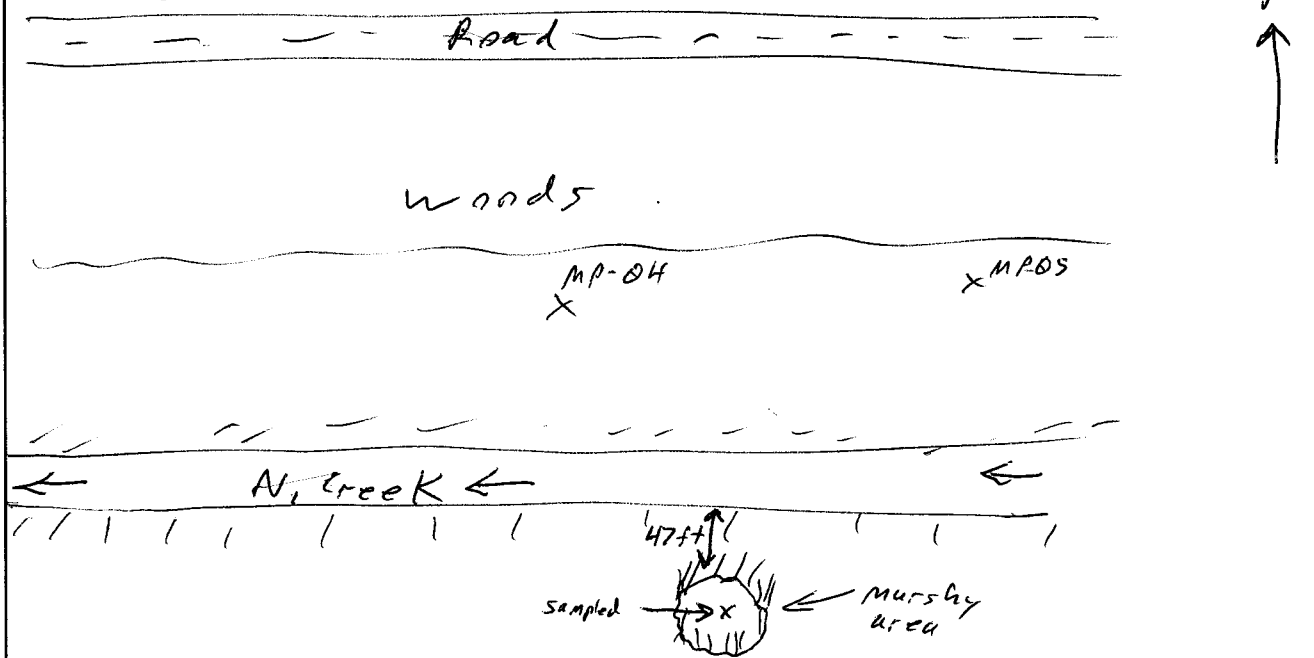 Road
Woods
MP-04
MP05
N. Creek
47ft
sampled
Marshy
area